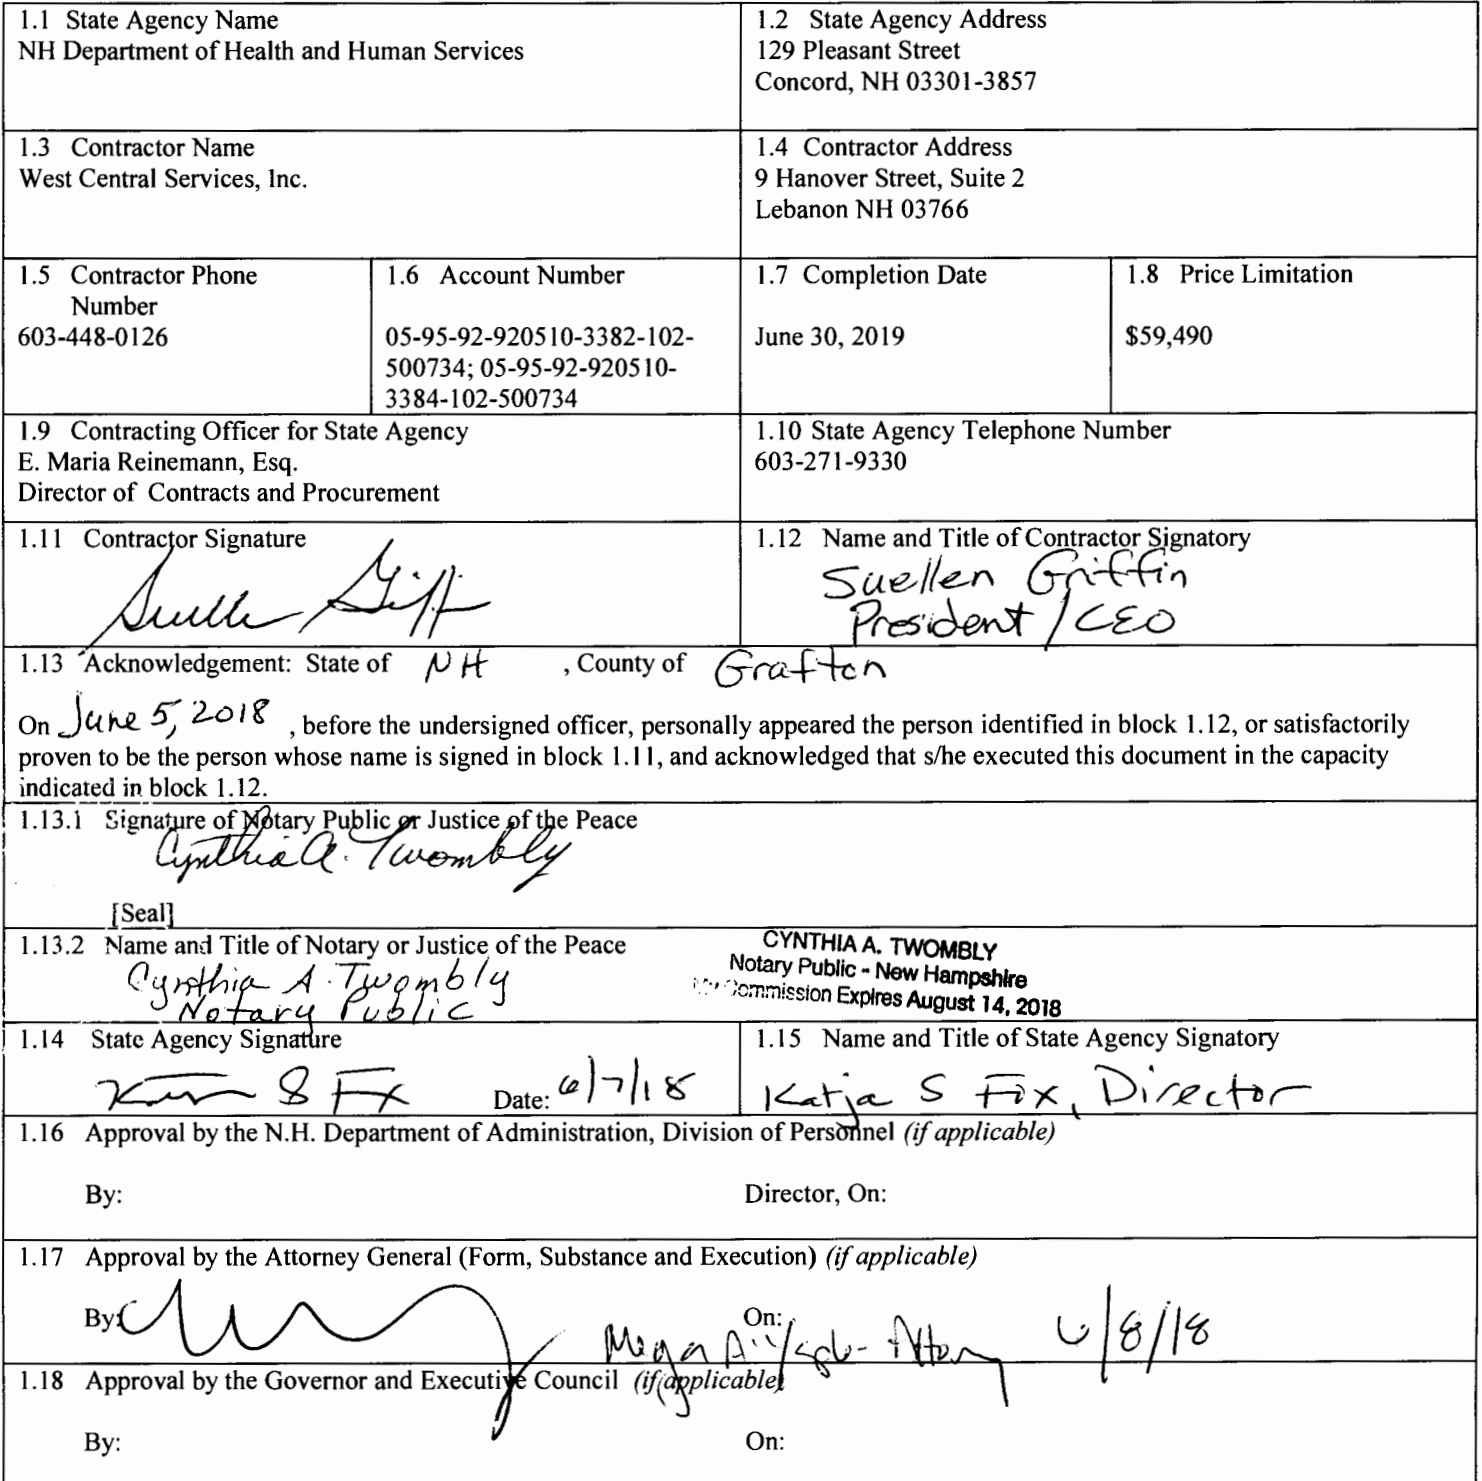 1.1 State Agency Name
NH Department of Health and Human Services
1.2 State Agency Address
129 Pleasant Street
Concord, NH 03301-3857
1.3 Contractor Name
West Central Services, Inc.
1.4 Contractor Address
9 Hanover Street, Suite 2
Lebanon NH 03766
1.5 Contractor Phone
Number
603-448-0126
1.6 Account Number
05-95-92-920510-3382-102-
500734; 05-95-92-920510-
3384-102-500734
1.7 Completion Date
June 30, 2019
1.8 Price Limitation
$59,490
1.9 Contracting Officer for State Agency
E. Maria Reinemann, Esq.
Director of Contracts and Procurement
1.10 State Agency Telephone Number
603-271-9330
1.11 Contractor Signature
1.12 Name and Title of Contractor Signatory
Suellen Griffin
President / CEO
1.13 Acknowledgement: State of NH , County of Grafton
On June 5, 2018 , before the undersigned officer, personally appeared the person identified in block 1.12, or satisfactorily
proven to be the person whose name is signed in block 1.11, and acknowledged that s/he executed this document in the capacity
indicated in block 1.12.
1.13.1 Signature of Notary Public or Justice of the Peace
Cynthia A. Twombly
[Seal]
1.13.2 Name and Title of Notary or Justice of the Peace
Cynthia A. Twombly
Notary Public
CYNTHIA A. TWOMBLY
Notary Public - New Hampshire
My Commission Expires August 14, 2018
1.14 State Agency Signature
Date: 6/7/18
1.15 Name and Title of State Agency Signatory
Katja S Fox, Director
1.16 Approval by the N.H. Department of Administration, Division of Personnel (if applicable)
By:
Director, On:
1.17 Approval by the Attorney General (Form, Substance and Execution) (if applicable)
By:
On: 6/8/18
1.18 Approval by the Governor and Executive Council (if applicable)
By:
On: